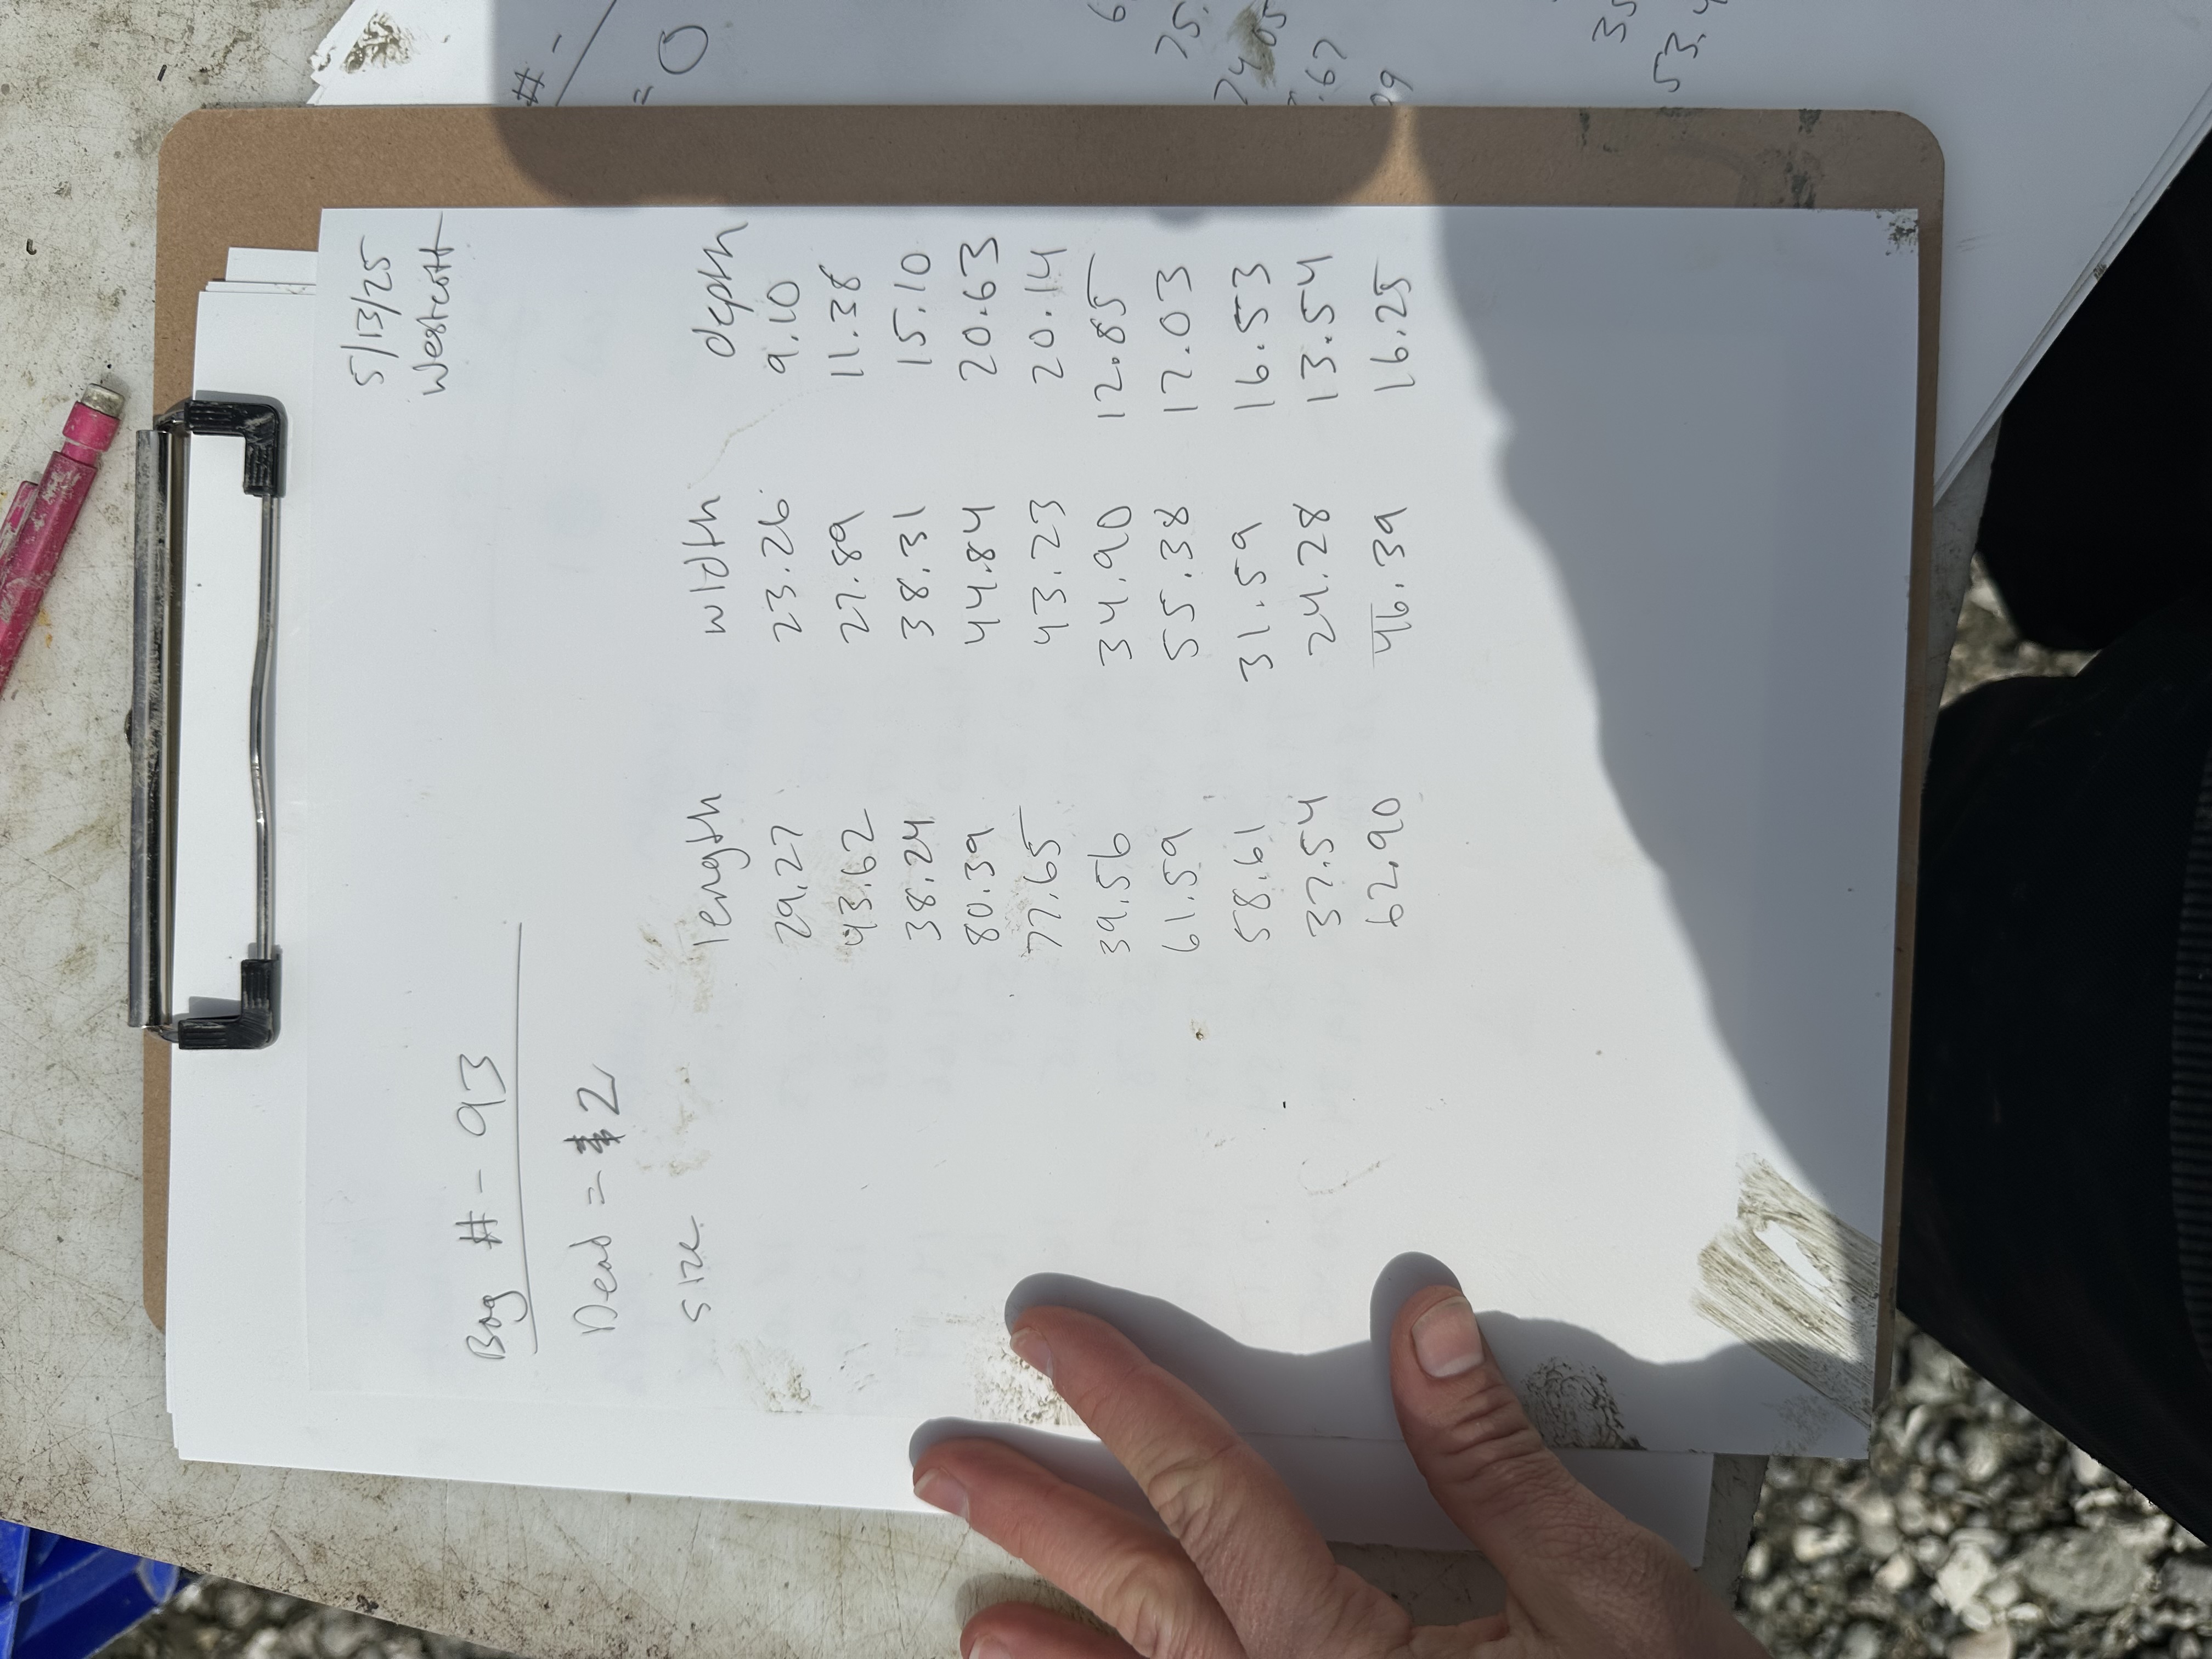 5/13/25
Westcott
Bag # - 93
Dead = 2
size
length width depth
29.27 23.26 9.10
43.62 27.89 11.38
38.24 38.31 15.10
80.39 44.84 20.63
77.65 43.23 20.14
39.56 34.90 12.85
61.59 55.38 17.03
58.61 31.59 16.53
37.54 24.28 13.54
62.90 46.39 16.25
# -
= 0
75.
74.05
.67
35
53.4